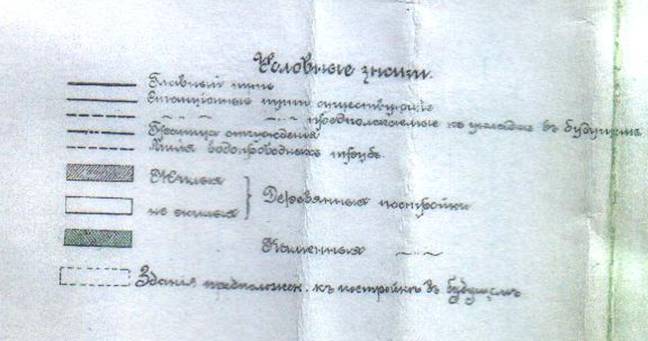 Условные знаки.
Главный путь
Станционные пути существующие
— предполагаемые къ укладкѣ въ будущемъ
Граница отчужденія
Линія водопроводныхъ трубъ
Жилыя
не жилыя
Деревянныя постройки
Каменныя —
Зданія предположен. къ постройкѣ въ будущемъ